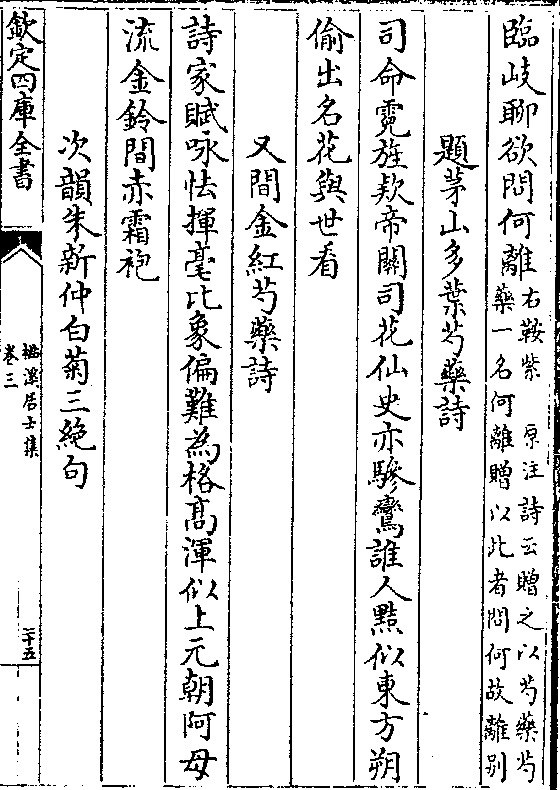 臨岐聊欲問何離右鞍紫　原注詩云贈之以芍藥芍
藥一名何離贈以此者問何故離别
題茅山多葉芍藥詩
司命霓旌欵帝關司花仙史亦驂鸞誰人黠似東方朔
偷出名花與世看
又間金紅芍藥詩
詩家賦咏怯揮毫比象偏難為格髙渾似上元朝阿母
流金鈴間赤霜袍
次韻朱新仲白菊三絶句
欽定四庫全書
卷三
二十五